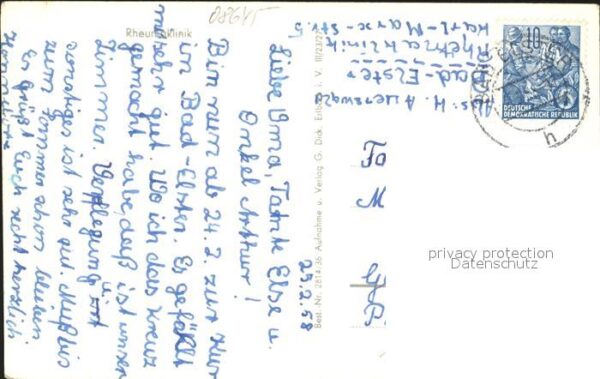 Rheumaklinik
08615
29.2.58
Liebe Oma, Tante Else u.
Onkel Arthur!
Bin nun ab 24.2. zur Kur
in Bad-Elster. Es gefällt
mir sehr gut. Wo ich das Kreuz
gemacht habe, daß ist unser
Zimmer. Verpflegung u.
sonstiges ist sehr gut. Muß bis
zum Sommer schon bleiben
Es grüßt Euch recht herzlich
Abs: H. Auerswald
Bad-Elster
Rheumaklinik
Karl-Marx-Str. 5
Best.-Nr. 2814/36 Aufnahme u. Verlag G. Dick, Erlb
V III/23/27
Fa
M
10
DEUTSCHE
DEMOKRATISCHE REPUBLIK
BAD ELSTER
h
privacy protection
Datenschutz